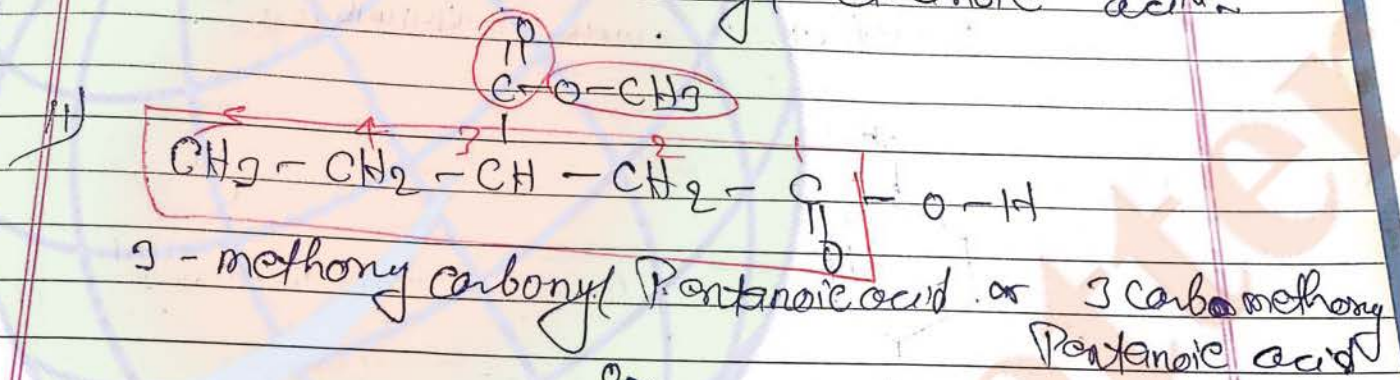 O
||
C-O-CH3
|
1)
3 2 1
CH3 - CH2 - CH - CH2 - C - O - H
||
O
3 - methoxy carbonyl Pentanoic acid or 3 Carbomethoxy
Pentanoic acid